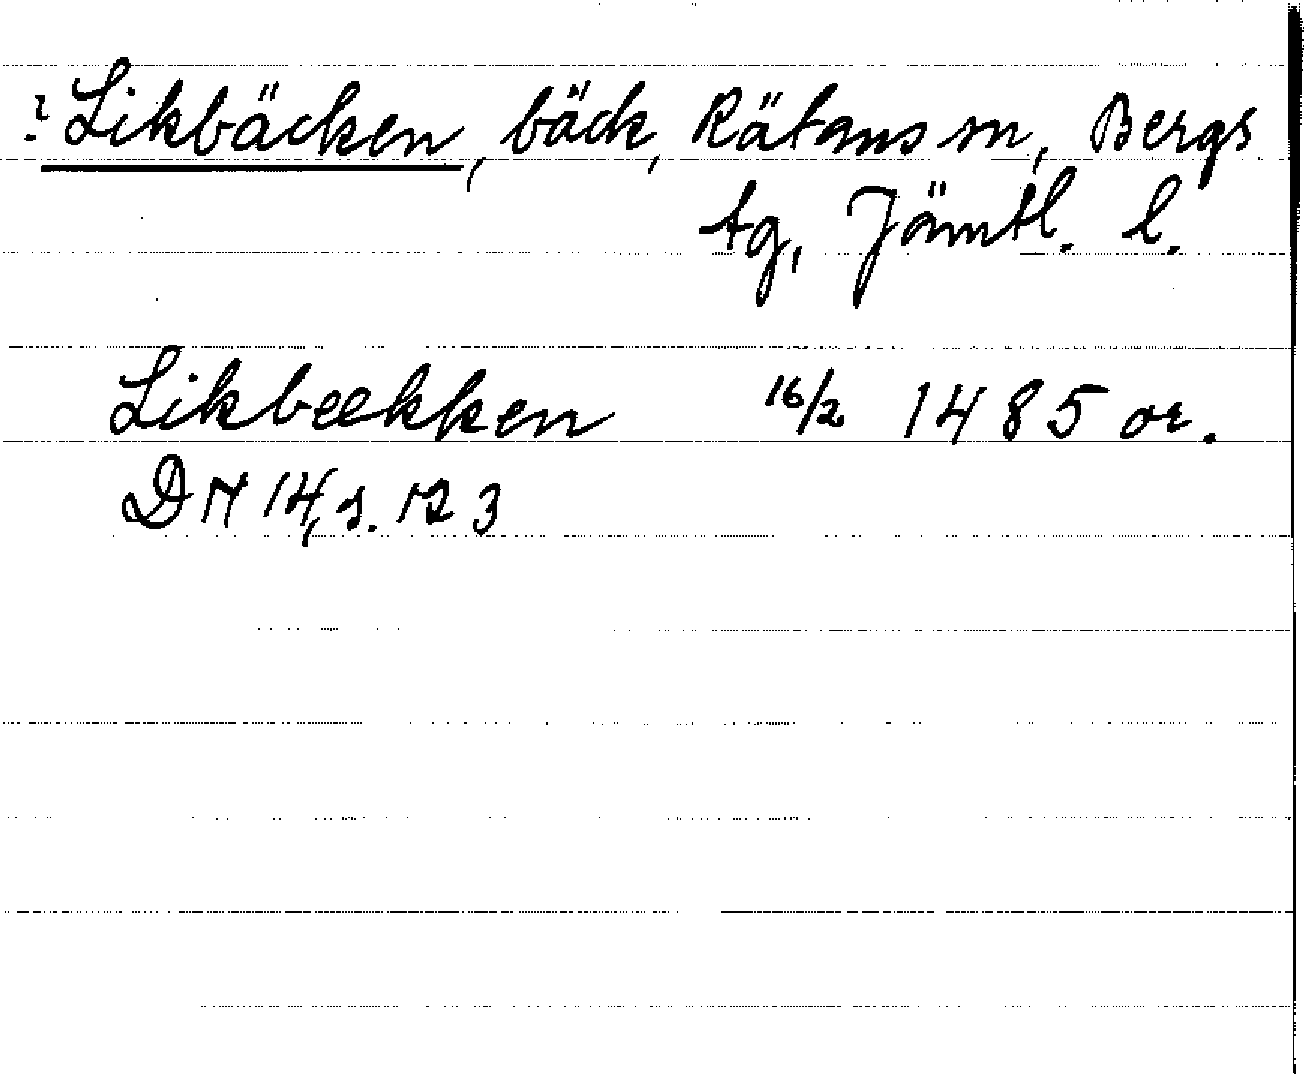 ? Likbäcken, bäck, Rätans sn, Bergs
tg, Jämtl. l.
Likbeekken 16/2 1485 or.
DN 14, s. 123